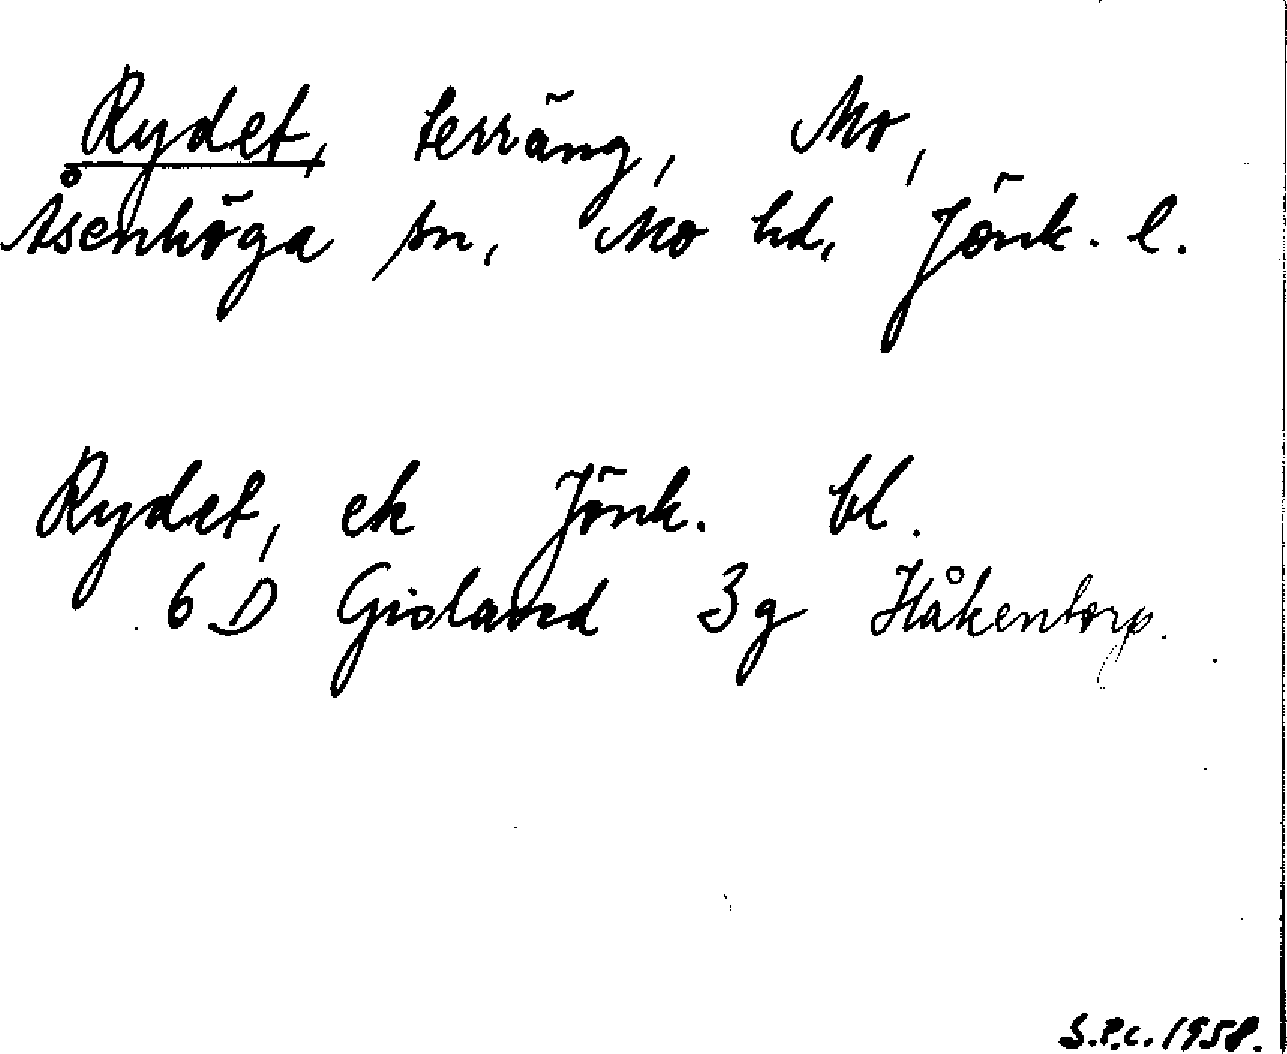 Rydet, terräng, Mo,
Åsenhöga sn, Mo hd, Jönk. l.
Rydet, ek Jönk. bl.
6 D Gislaved 3g Håkentorp.
S.P.C. 1958.